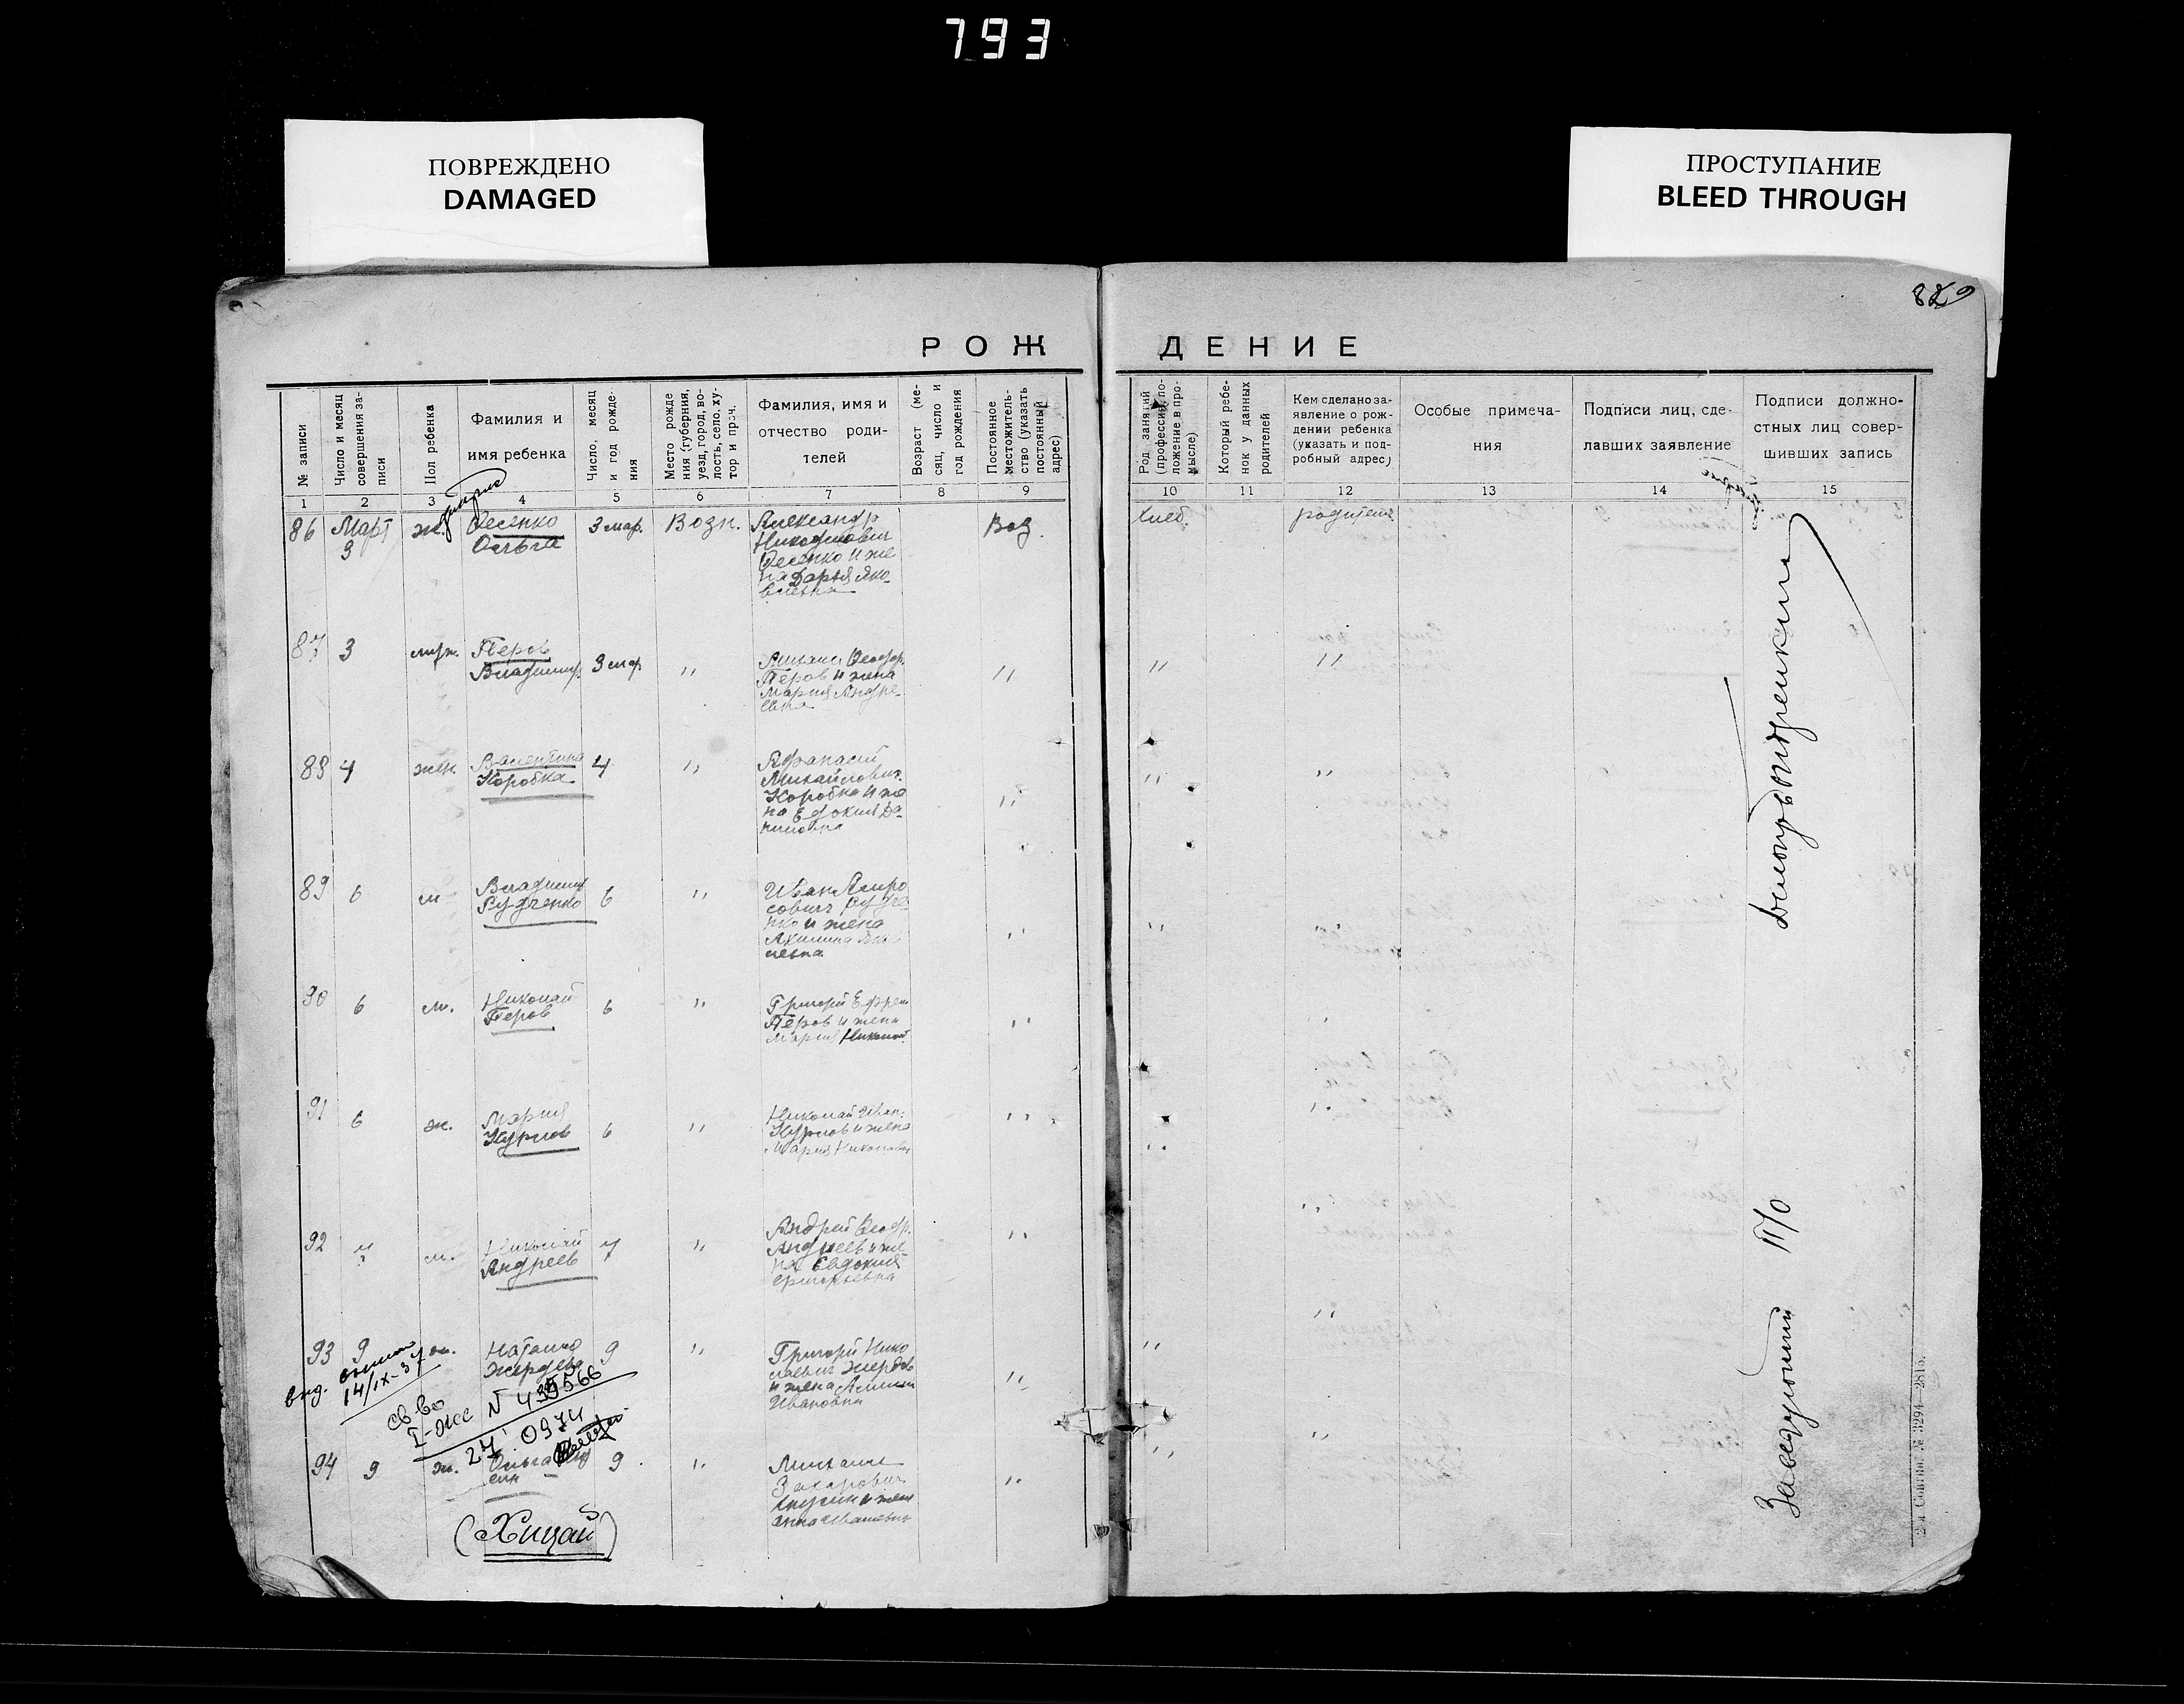 793
ПОВРЕЖДЕНО
DAMAGED
ПРОСТУПАНИЕ
BLEED THROUGH
829
РОЖДЕНИЕ
№ записи
Число и месяц совершения записи
Пол ребенка
Фамилия и имя ребенка
Число, месяц и год рождения
Место рождения (губерния, уезд, город, волость, село, хутор и проч.
Фамилия, имя и отчество родителей
Возраст (месяц, число и год рождения
Постоянное местожительство (указать постоянный адрес)
Род занятий (профессия, положение в промысле)
Который ребенок у данных родителей
Кем сделано заявление о рождении ребенка (указать и подробный адрес)
Особые примечания
Подписи лиц, сделавших заявление
Подписи должностных лиц совершивших запись
1 2 3 4 5 6 7 8 9 10 11 12 13 14 15
86 Март 3 ж. Ольга 3 мар. Возн. Александр
Никодимович
и же
на Дарья Яко-
влевна
Воз. Хлеб. родители
87 3 муж. Перов
Владимир 3 мар. " Михаил Феодор.
Перов и жена
Мария Андре-
евна
" " "
88 4 жен. Валентина
Коробка 4 " Афанасий
Михайлович
Коробка и же
на Евдокия Да-
ниловна
" " "
89 6 м Владимир
Рудченко 6 " Иван
Рудче
нко и жена
Акилина Яков
левна
" " "
90 6 м. Николай
Перов 6 " Григорий Ефрем
Перов и жена
Мария Николай
" "
91 6 ж. Мария
Курилов 6 " Николай Иван.
Курилов и жена
Мария Николаевн
" " "
92 7 м. Николай
Андреев 7 " Андрей Феодр.
Андреев и же
на Евдокия
Григорьевна
" "
93 9 ж. Наталия
9 " Григорий Нико
лаевич
и жена
Ивановна
" " "
14/IX-37
св-во
I-жсс N
27 0974
94 9 ж. Ольга 9 " Михаил
Захарович
и жена
Анна
" " "
(Хицай)
Заведующий П/О
2-я Совтип. № 3294—2815.